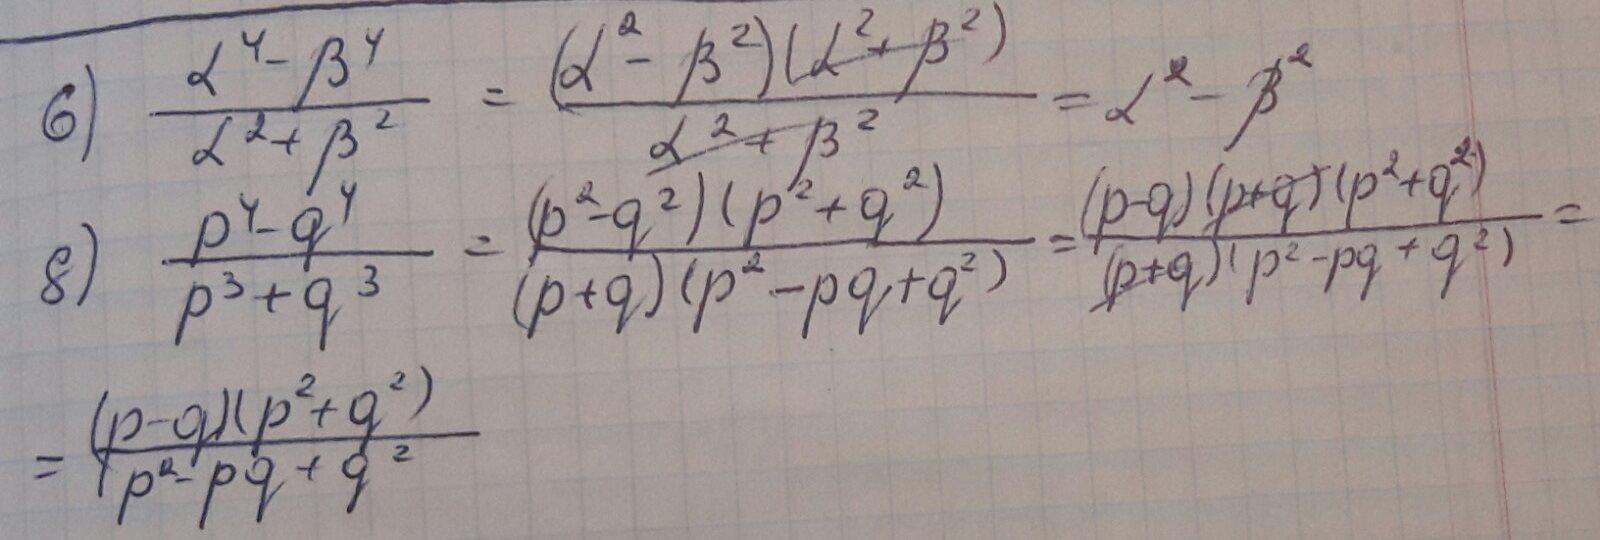 6) (α⁴ - β⁴)/(α² + β²) = (α² - β²)(α² + β²)/(α² + β²) = α² - β²
8) (p⁴ - q⁴)/(p³ + q³) = (p² - q²)(p² + q²)/((p + q)(p² - pq + q²)) = (p - q)(p + q)(p² + q²)/((p + q)(p² - pq + q²)) =
= (p - q)(p² + q²)/(p² - pq + q²)